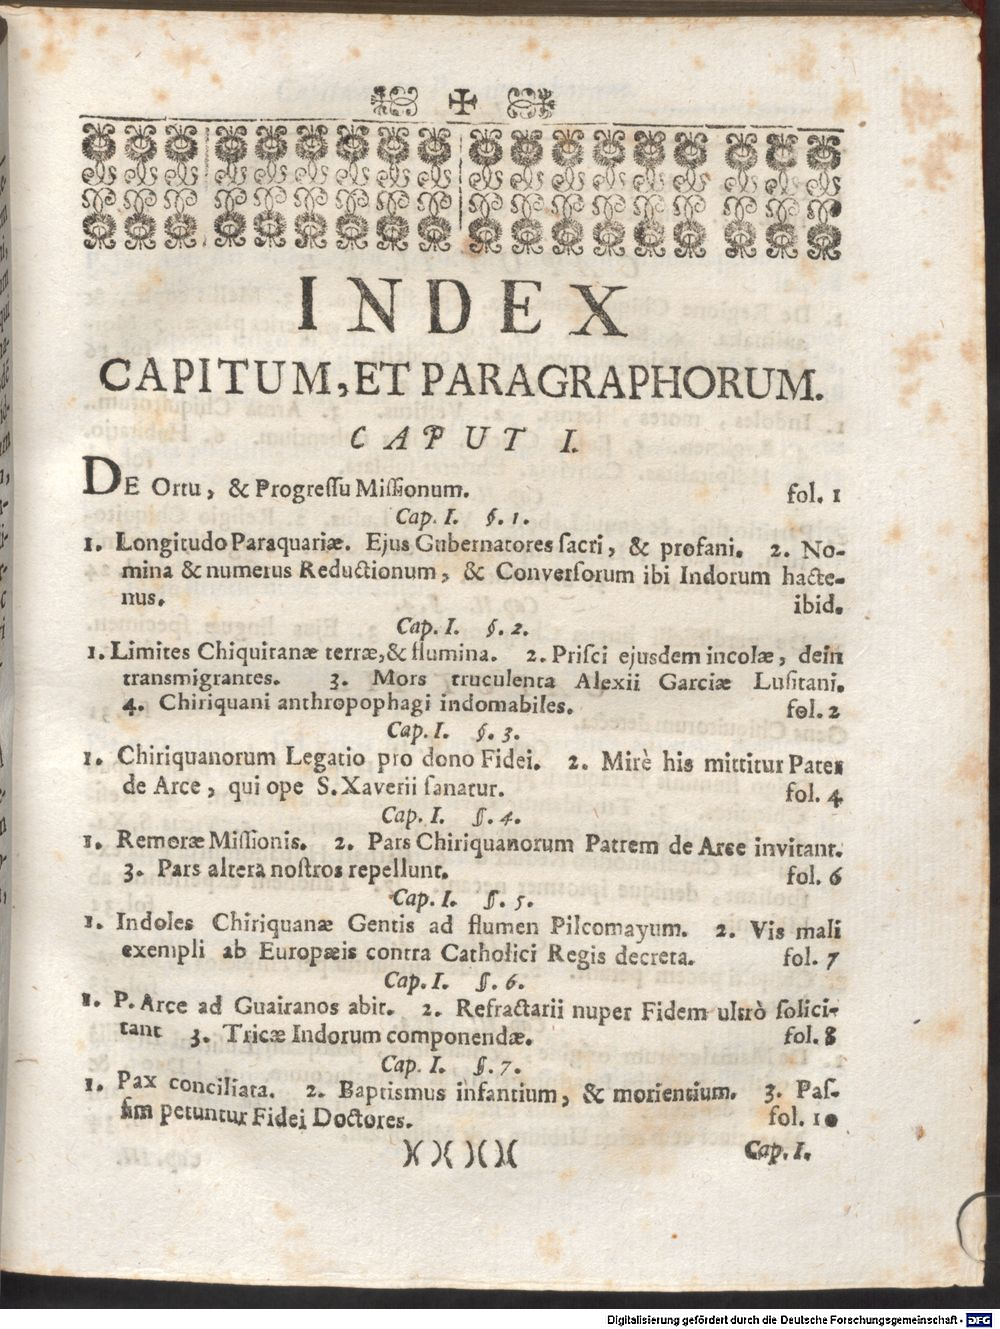 INDEX
CAPITUM, ET PARAGRAPHORUM.
CAPUT I.
DE Ortu, & Progreſſu Miſſionum. fol. 1
Cap. I. §. 1.
1. Longitudo Paraquariæ. Ejus Gubernatores ſacri, & profani. 2. No-
mina & numerus Reductionum, & Converſorum ibi Indorum hacte-
nus. ibid.
Cap. I. §. 2.
1. Limites Chiquitanæ terræ, & flumina. 2. Priſci ejusdem incolæ, dein
transmigrantes. 3. Mors truculenta Alexii Garciæ Luſitani.
4. Chiriquani anthropophagi indomabiles. fol. 2
Cap. I. §. 3.
1. Chiriquanorum Legatio pro dono Fidei. 2. Mirè his mittitur Pater
de Arce, qui ope S. Xaverii ſanatur. fol. 4
Cap. I. §. 4.
1. Remoræ Miſſionis. 2. Pars Chiriquanorum Patrem de Arce invitant.
3. Pars altera noſtros repellunt. fol. 6
Cap. I. §. 5.
1. Indoles Chiriquanæ Gentis ad flumen Pilcomayum. 2. Vis mali
exempli ab Europæis contra Catholici Regis decreta. fol. 7
Cap. I. §. 6.
1. P. Arce ad Guairanos abit. 2. Refractarii nuper Fidem ultrò ſolici-
tant 3. Tricæ Indorum componendæ. fol. 8
Cap. I. §. 7.
1. Pax conciliata. 2. Baptismus infantium, & morientium. 3. Paſ-
ſim petuntur Fidei Doctores. fol. 10
)( )( )( )( Cap. I.
Digitalisierung gefördert durch die Deutsche Forschungsgemeinschaft - DFG